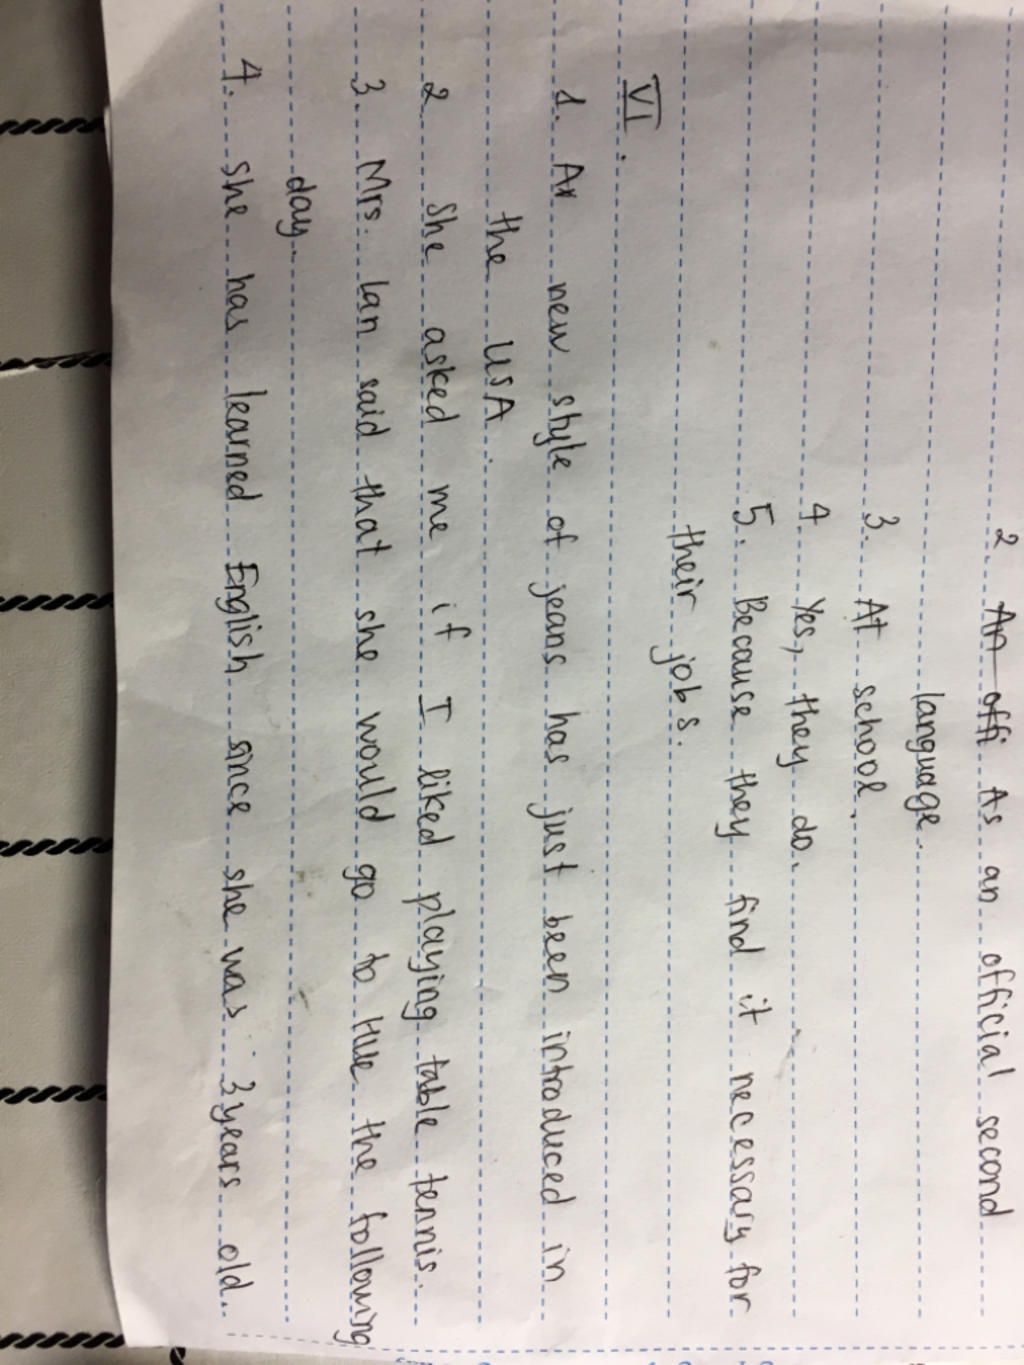 2. An offi As an official second
language.
3. At school.
4 Yes, they do.
5. Because they find it necessary for
their jobs.
VI.
1. A new style of jeans has just been introduced in
the USA.
2 She asked me if I liked playing table tennis.
3. Mrs. lan said that she would go to Hue the following
day.
4. she has learned English since she was 3 years old.